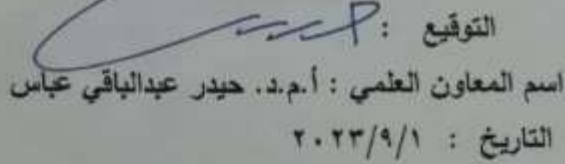 التوقيع :
اسم المعاون العلمي : أ.م.د. حيدر عبدالباقي عباس
التاريخ : ٢٠٢٣/٩/١